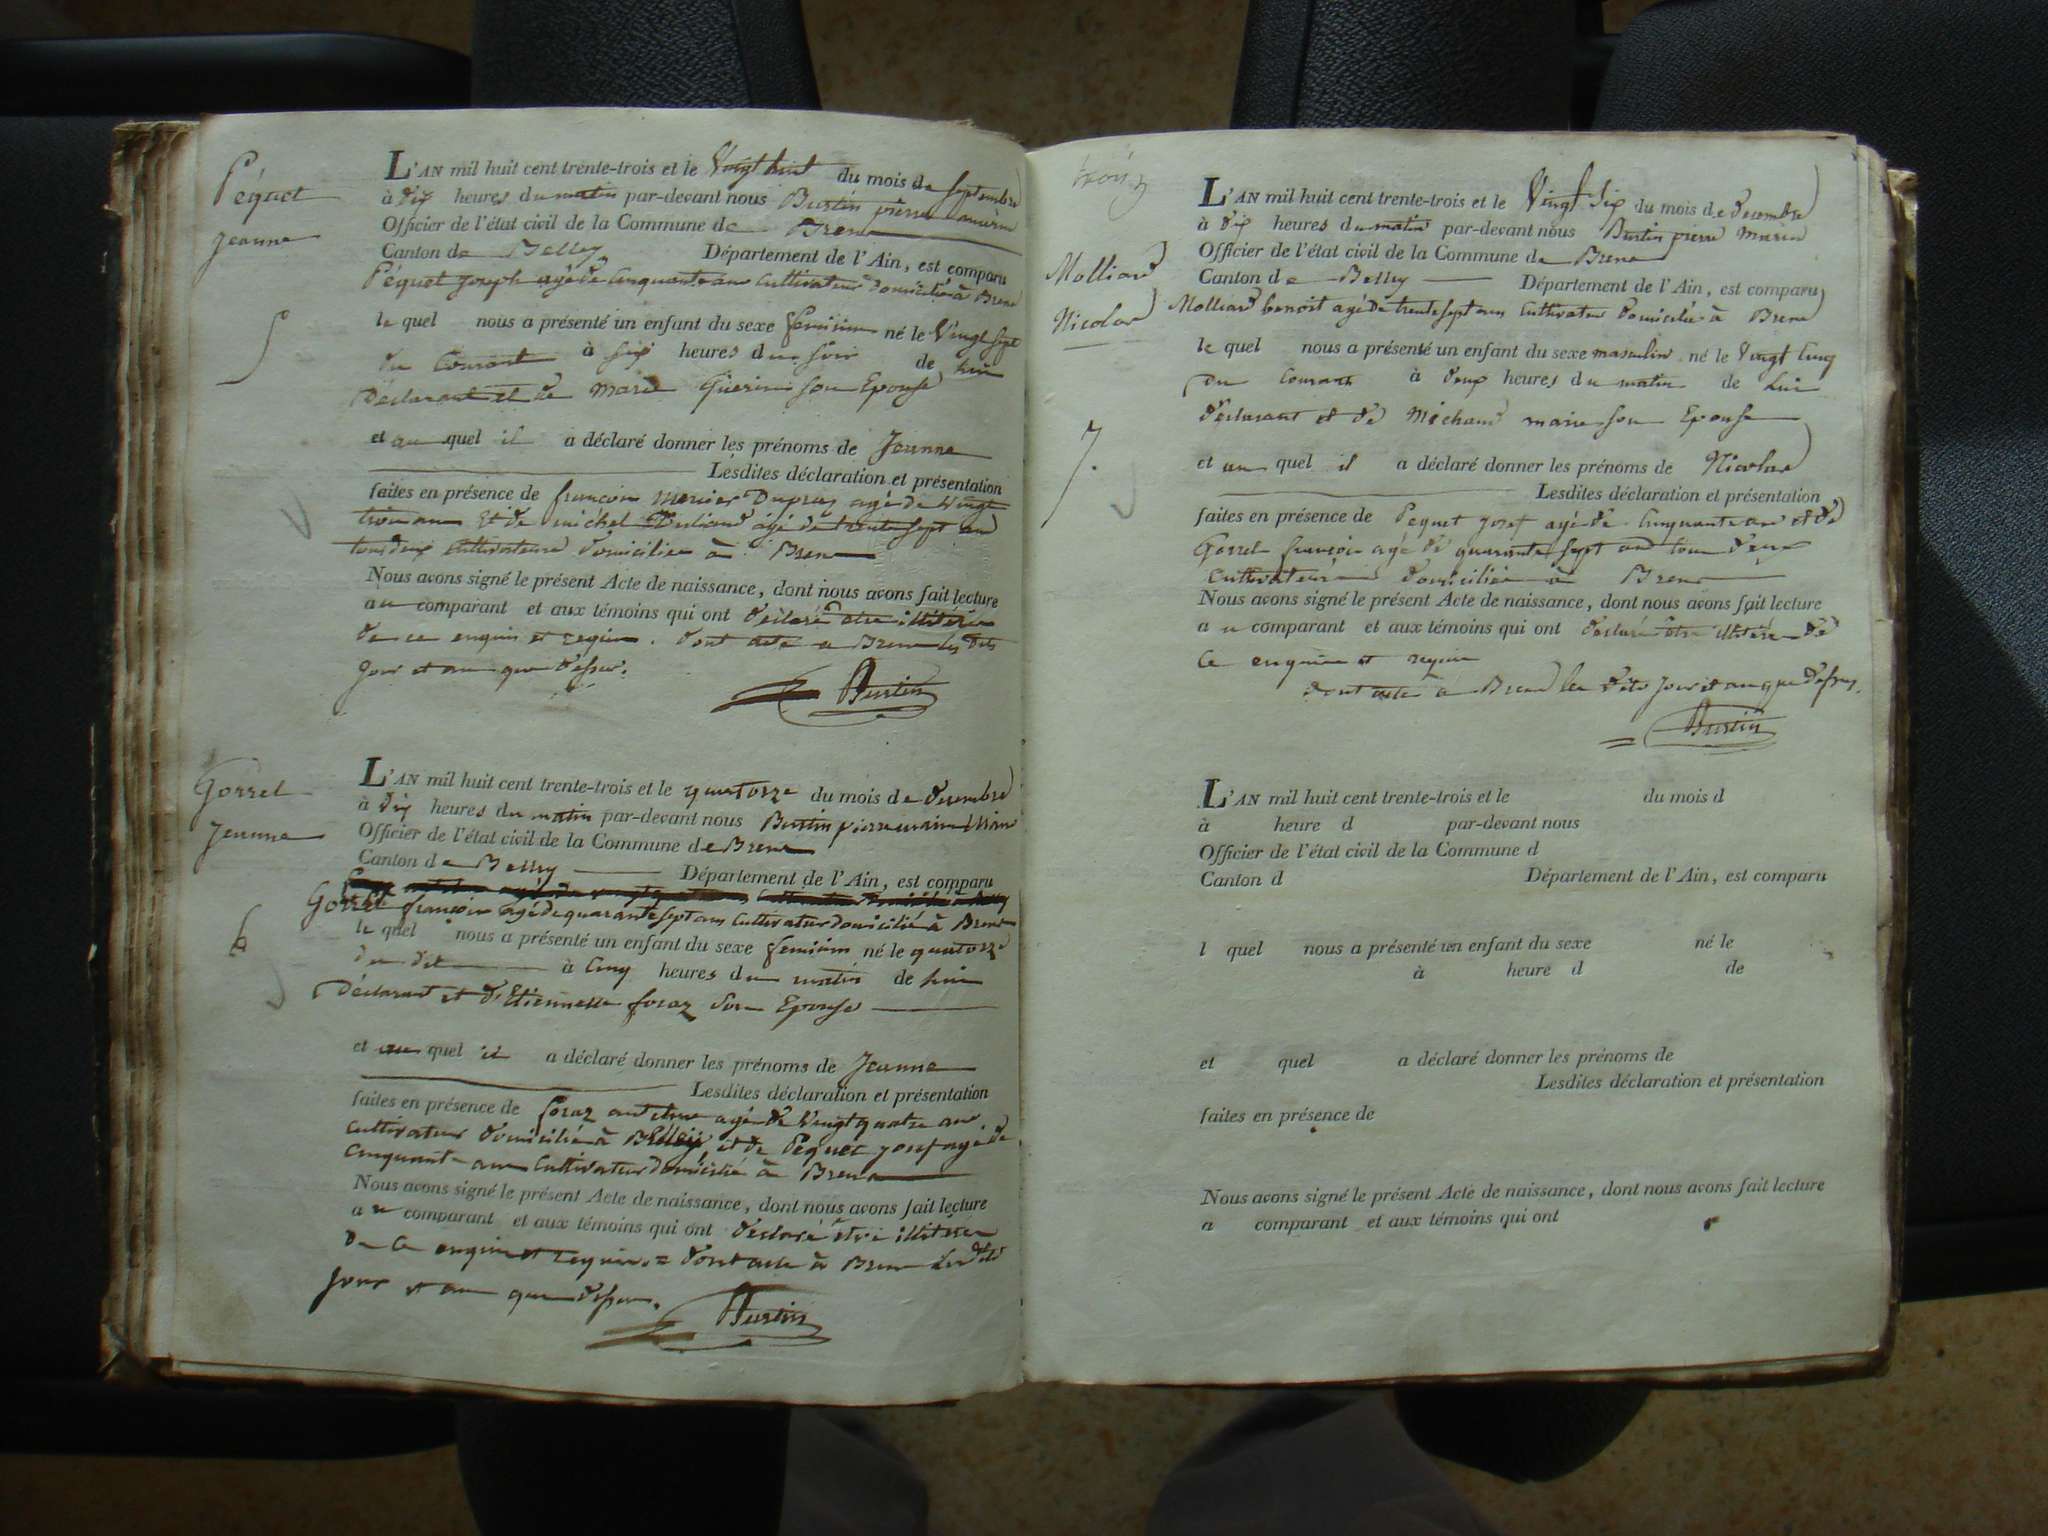 Péquet
Jeanne
L'AN mil huit cent trente-trois et le Vingt huit du mois de septembre
à dix heures du matin par-devant nous Burtin pierre
Officier de l'état civil de la Commune de Bren
Canton de Belley Département de l'Ain, est comparu
Péquet joseph agé de Cinquante ans Cultivateur domicilié à Bren
le quel nous a présenté un enfant du sexe feminin né le Vingt sept
du Courant à six heures du soir de lui
5
Déclarant et de marie Guerin son Epouse
et au quel il a déclaré donner les prénoms de Jeanne
Lesdites déclaration et présentation
faites en présence de françois mercier Dupraz agé de Vingt
trois ans Et de michel agé de trente sept ans
tous deux Cultivateurs domiciliés à Bren
Nous avons signé le présent Acte de naissance, dont nous avons fait lecture
au comparant et aux témoins qui ont déclaré être
de ce enquis et requis. dont acte a Bren les dits
jour et an que dessus.
Burtin
Gorret
Jeanne
L'AN mil huit cent trente-trois et le quatorze du mois de decembre
à dix heures du matin par-devant nous Burtin pierre marie Maire
Officier de l'état civil de la Commune de Bren
Canton de Belley Département de l'Ain, est comparu
Gorret françois agé de quarante sept ans Cultivateur domicilié à Bren
le quel nous a présenté un enfant du sexe feminin né le quatorze
6
du dit à Cinq heures du matin de lui
Déclarant et d'Etiennette foraz son Epouse
et au quel il a déclaré donner les prénoms de Jeanne
Lesdites déclaration et présentation
faites en présence de foraz antelme agé de Vingt quatre ans
Cultivateur domicilié à Belley, et de Pequet josef agé de
Cinquante ans Cultivateur domicilié à Bren
Nous avons signé le présent Acte de naissance, dont nous avons fait lecture
au comparant et aux témoins qui ont déclaré être
De Ce enquis et requis = dont acte à Bren les dits
jour et an que dessus.
Burtin
L'AN mil huit cent trente-trois et le Vingt Six du mois de decembre
à dix heures du matin par-devant nous Burtin pierre Marie
Officier de l'état civil de la Commune de Bren
Molliard
Nicolas
Canton de Belley Département de l'Ain, est comparu
Molliard benoit agé de trente sept ans Cultivateur domicilié à Bren
le quel nous a présenté un enfant du sexe masculin né le Vingt Cinq
du Courant à deux heures du matin de Lui
déclarant et de Michaud marie son Epouse
7.
et au quel il a déclaré donner les prénoms de Nicolas
Lesdites déclaration et présentation
faites en présence de Pequet josef agé de Cinquante ans et de
Gorret françois agé de quarante sept ans tous deux
Cultivateurs domiciliés à Bren
Nous avons signé le présent Acte de naissance, dont nous avons fait lecture
au comparant et aux témoins qui ont déclaré être De
Ce enquis et requis
dont acte à Bren les dits jour et an que dessus.
Burtin
L'AN mil huit cent trente-trois et le du mois d
à heure d par-devant nous
Officier de l'état civil de la Commune d
Canton d Département de l'Ain, est comparu
l quel nous a présenté un enfant du sexe né le
à heure d de
et quel a déclaré donner les prénoms de
Lesdites déclaration et présentation
faites en présence de
Nous avons signé le présent Acte de naissance, dont nous avons fait lecture
a comparant et aux témoins qui ont